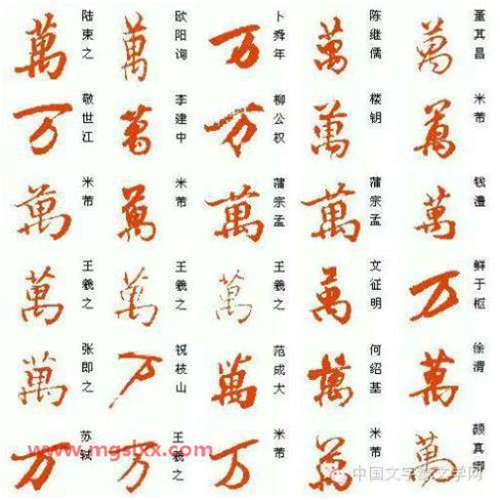 萬 陆柬之 萬 欧阳询 万 卜舜年 萬 陈继儒 萬 董其昌
万 敬世江 萬 李建中 万 柳公权 萬 楼钥 萬 米芾
萬 米芾 萬 米芾 萬 蒲宗孟 萬 蒲宗孟 萬 钱澧
萬 王羲之 萬 王羲之 萬 王羲之 萬 文征明 万 鲜于枢
萬 张即之 万 祝枝山 萬 范成大 萬 何绍基 萬 徐渭
万 苏轼 万 王羲之 万 米芾 萬 米芾 萬 颜真卿
www.mgsbxx.com
中国文字 文学网